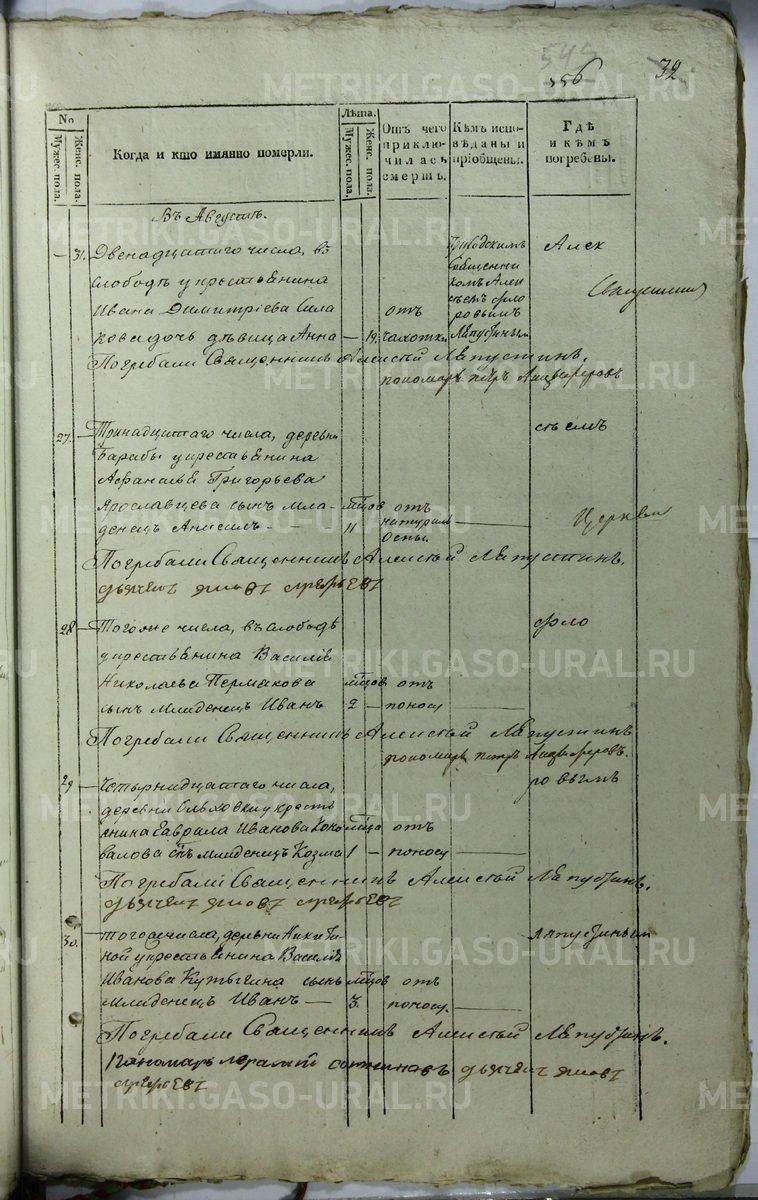 549
556
32
No
Мужес. пола.
Женс. пола.
Когда и кто имянно померли.
Лѣта.
Мужес. пола.
Женс. пола.
Отъ чего приключилась смерть.
Кѣмъ исповѣданы и пріобщены.
Гдѣ и кѣмъ погребены.
Въ Августѣ.
31. Двенадцатаго числа, въ
слободѣ у крестьянина
Ивана Димитріева Сила
кова дочь дѣвица Анна — 19. отъ чахотки
Приходскимъ
Священни
комъ Алек
сѣемъ Фло
ровымъ
Лапустинымъ
Алек
Священник
Погребали Священникъ Алексѣй Лапустинъ.
пономарь Петръ
27. Тринадцатаго числа, деревни
Барабы у крестьянина
Афанасья Григорьева
Ярославцева сынъ мла-
денецъ Анисимъ - - мцов 11 отъ натураль оспы.
сѣемъ
Церкви
Погребали Священникъ Алексѣй Лапустинъ.
28. Тогоже числа, въ слободѣ
у крестьянина Василія
Николаева Пермакова
сынъ младенецъ Иванъ мцов 2 — отъ поносу
Фло
Погребали Священникъ Алексѣй Лапустинъ
пономарь Петръ
29 Четырнадцатаго числа,
деревни Ольховки у кресть
янина Гаврила Иванова Коно
валова сынъ младенецъ Козма мцо 1 — отъ поносу
ровымъ
Погребали Священникъ Алексѣй Лапустинъ.
30. тогожечисла, деревни Никити
ной у крестьянина Василія
Иванова сынъ мцов отъ
младенецъ Иванъ — 3. поносу.
Лапустинымъ
Погребали Священникъ Алексѣй Лапустинъ.
METRIKI.GASO-URAL.RU